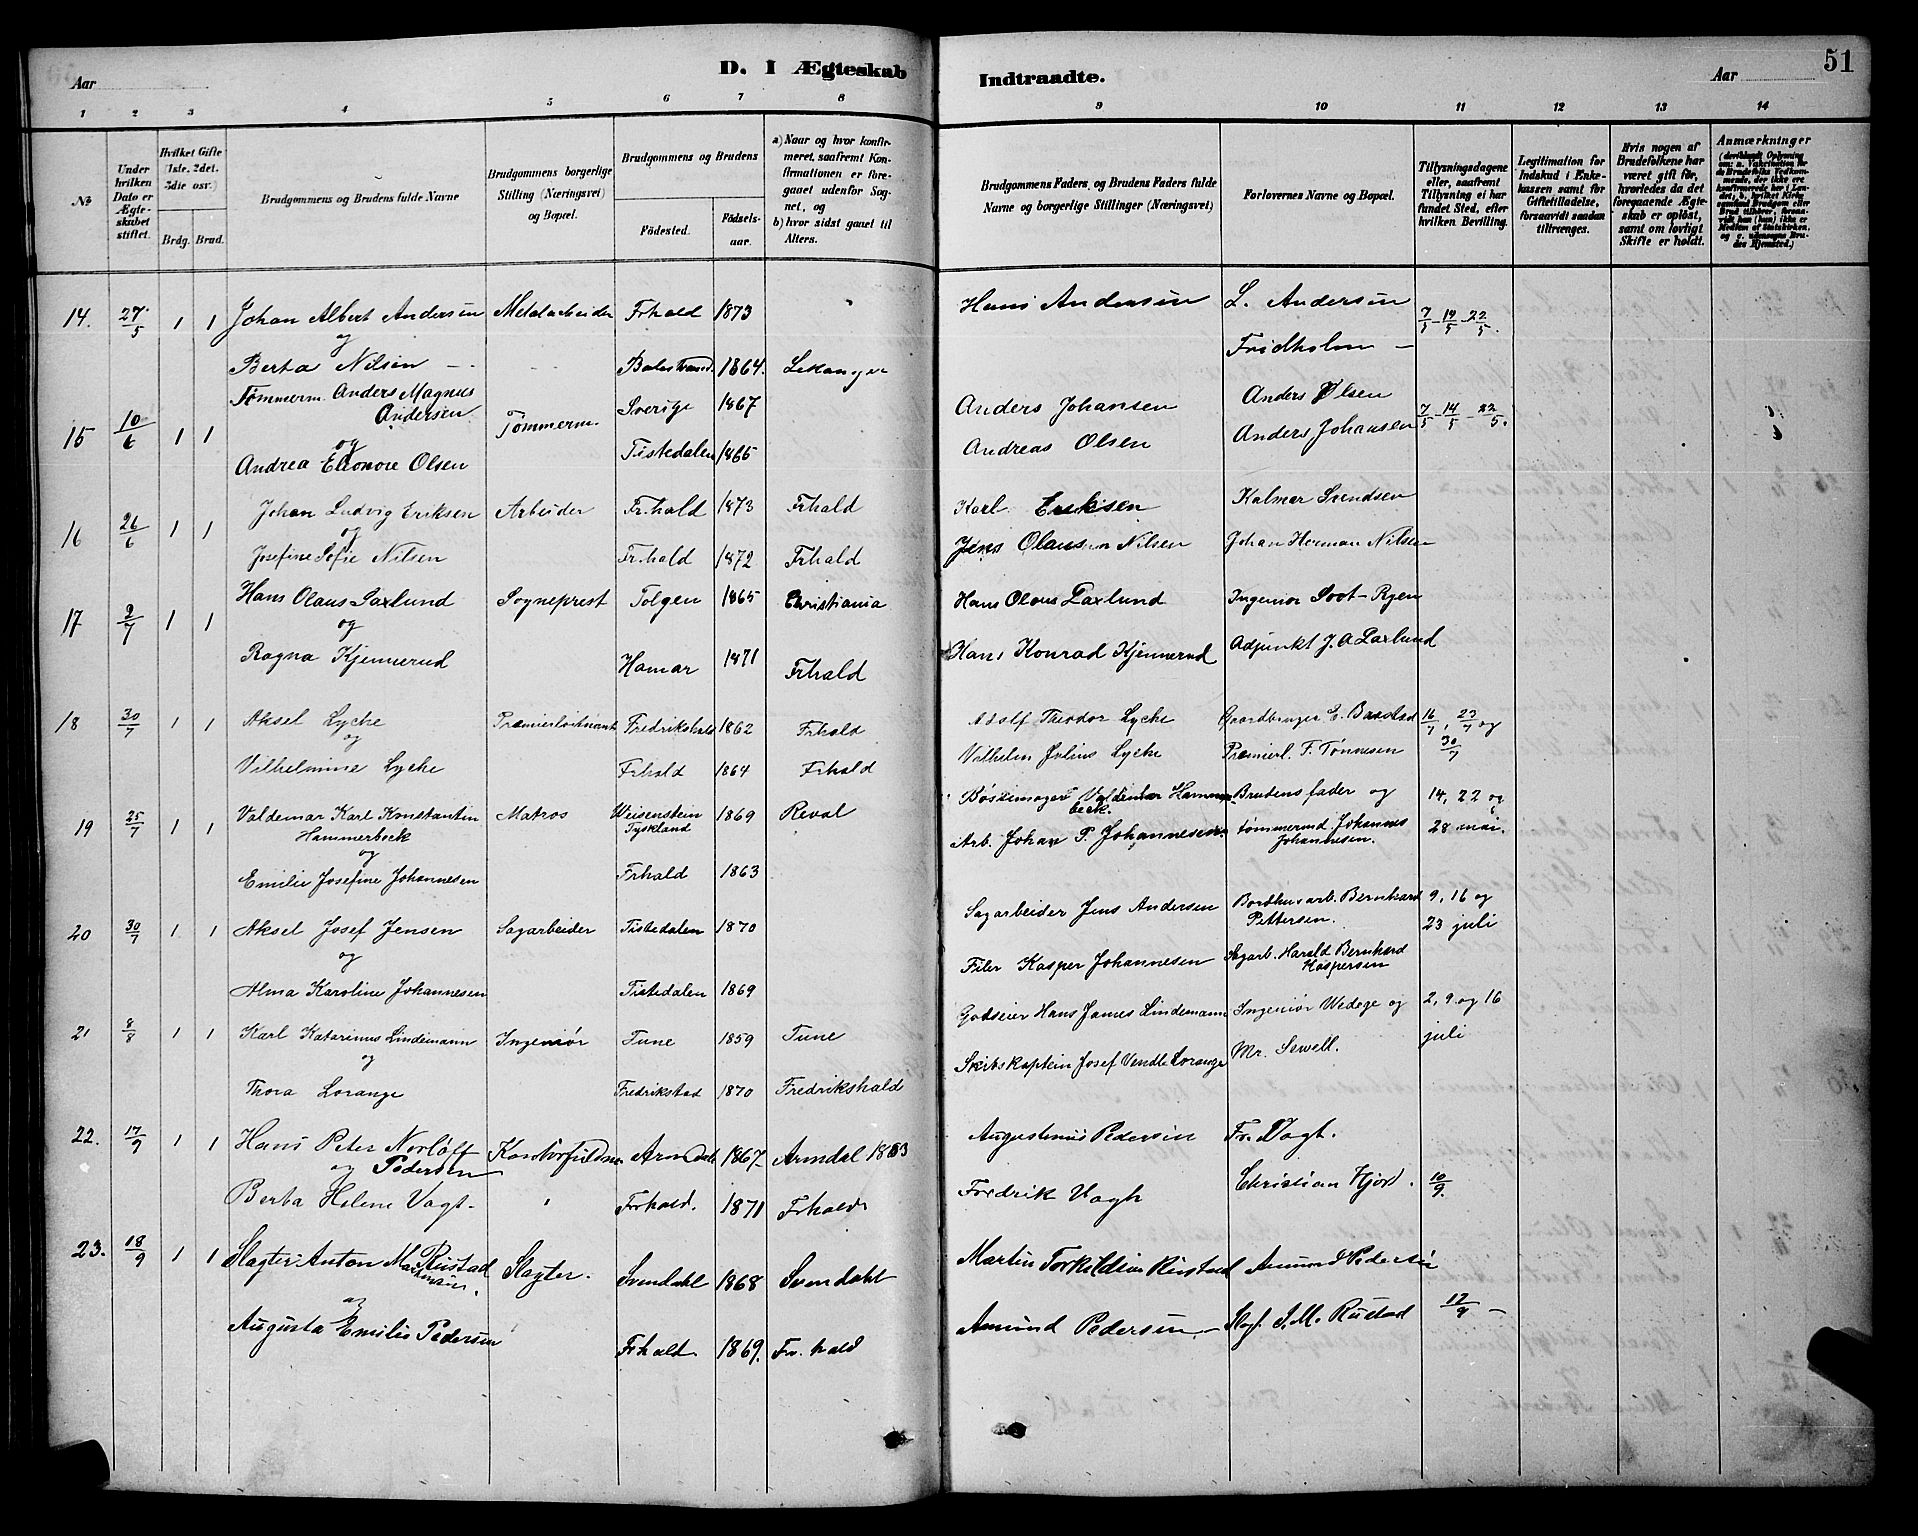 Aar
D. I Ægteskab
1 2 3 4 5 6 7 8
№
Under hvilken Dato er Ægteskabet stiftet.
Hvilket Gifte (1ste, 2det, 3die osv.)
Brdg. Brud.
Brudgommens og Brudens fulde Navne
Brudgommens borgerlige Stilling (Næringsvei) og Bopæl.
Brudgommens og Brudens
Födested. Födselsaar.
a) Naar og hvor konfirmeret, saafremt Konfirmationen er foregaaet udenfor Sognet, og
b) hvor sidst gaaet til Alters.
14. 27/5 1 1 Johan Albert Andersen Metalarbeider Frhald 1873
og
Berta Nilsen Balestrand 1864. Lekanger
15 10/6 1 1 Tømmerm. Anders Magnus Andersen Tømmerm. Sverige 1867
og
Andrea Eleonore Olsen Tistedalen 1865
16 26/6 1 1 Johan Ludvig Eriksen Arbeider Fr.hald 1873 Frhald
og
Josefine Sofie Nilsen Fr.hald 1872 Frhald
17 2/7 1 1 Hans Olaus Saxlund Sogneprest Tolgen 1865 Christiania
og
Ragna Kjennerud Hamar 1871 Frhald
18 30/7 1 1 Aksel Lyche Premierløitnant Fredrikshald 1862 Frhald
og
Vilhelmine Lyche Frhald 1864 Frhald
19 25/7 1 1 Valdemar Karl Konstantin Hammerbeck Matros Weisenstein Tyskland 1869 Reval
og
Emilie Josefine Johannesen Frhald 1863
20 30/7 1 1 Aksel Josef Jensen Sagarbeider Tistedalen 1870
og
Alma Karoline Johannesen Tistedalen 1869
21 8/8 1 1 Karl Katarinus Lindemann Ingeniør Tune 1859 Tune
og
Thora Lorange Fredrikstad 1870 Fredrikshald
22. 17/9 1 1 Hans Peter Norløff Pedersen Arendal 1867 Arendal
og
Berta Helene Vogt. Frhald. 1871 Frhald
23. 18/9 1 1 Slagter Anton Rustad Slagter. Svendahl 1868 Svendahl
og
Augusta Emilie Pedersen Frhald. 1869. Fr.hald
Indtraadte.
Aar 51
9 10 11 12 13 14
Brudgommens Faders, og Brudens Faders fulde Navne og borgerlige Stillinger (Næringsvei)
Forlovernes Navne og Bopæl.
Tillysningsdagene eller, saafremt Tillysning ei har fundet Sted, efter hvilken Bevilling.
Legitimation for Indskud i Enkekassen samt for Giftetilladelse, forsaavidt saadan tiltrænges.
Hvis nogen af Brudefolkene har været gift før, hvorledes da det foregaaende Ægteskab er oplöst, samt om lovligt Skifte er holdt.
Anmærkninger
Hans Andersen L. Andersen 7/5 - 14/5 - 22/5.
Fridholm
Anders Johansen Anders Olsen 7/5 - 14/5 - 22/5.
Andreas Olsen Anders Johansen
Karl Eriksen Kalmar Svendsen
Jens Olausen Nilsen Johan Herman Nilsen
Hans Olaus Saxlund Ingeniør Soot-Ryen
Hans Konrad Kjennerud Adjunkt J. A. Saxlund
Adolf Theodor Lyche Gaardbruger E. Baastad 16/7, 23/7 og
Vilhelm Julius Lyche Premierl. F. Tønnesen 30/7
Bøssemager Valdemar Hammerbeck. Brudens fader og 14, 22 og
Arb. Johan P. Johannesen. tømmermd Johannes Johannesen. 28 mai.
Sagarbeider Jens Andersen Bernhard Pettersen. 9, 16 og 23 juli
Filer Kasper Johannesen Sagarb. Harald Bernhard Kaspersen
Godseier Hans James Lindemann Ingeniør Wedege og 2, 9 og 16 juli
Skibskaptein Josef Vendle Lorange Mr. Sewell.
Augustinus Pedersen Fr. Vogt.
Fredrik Vogh Christian Hjord. 10/9.
Martin Torkildsen Rustad Amund Pedersen
Amund Pedersen Slagt. S. M. Rustad 17/9